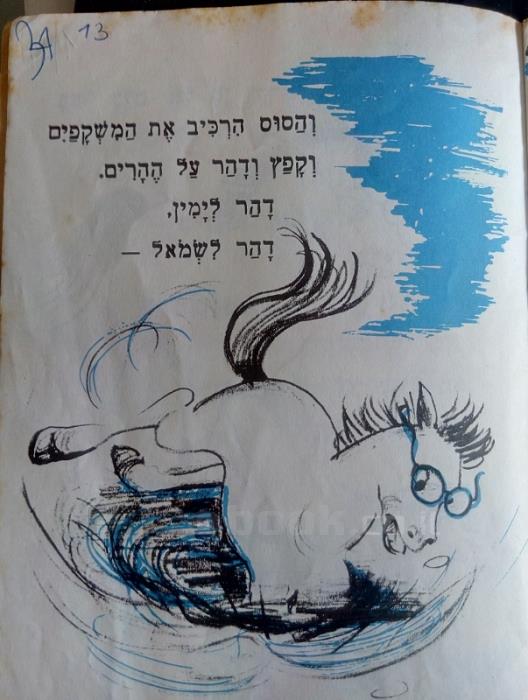 13
וְהַסּוּס הִרְכִּיב אֶת הַמִּשְׁקָפַיִם
וְקָפַץ וְדָהַר עַל הֶהָרִים.
דָּהַר לְיָמִין,
דָּהַר לִשְׂמֹאל –